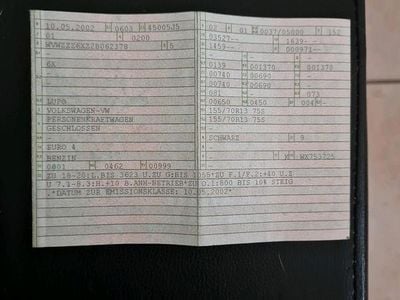 10.05.2002 0603 4500535
01 0200
WVWZZZ6XZ2B062378 5
-
6X
-
-
LUPO
VOLKSWAGEN-VW
PERSONENKRAFTWAGEN
GESCHLOSSEN
-
EURO 4
BENZIN
0801 0462 00999
02 01 0037/05000 152
03527-- 1639--
1459-- 000971--
-
0139 001370 001370
00740 00690
00740 00690
081 073
00650 0450 004 -
155/70R13 75S
155/70R13 75S
-
SCHWARZ 9
-
- - WX753725
ZU 18-20:L.BIS 3623 U.ZU G:BIS 1055*ZU F.1/F.2:+40 U.Z
U 7.1-8.3:H.+10 B.ANH-BETRIEB*ZU O.1:800 BIS 10% STEIG
.*DATUM ZUR EMISSIONSKLASSE: 10.05.2002*